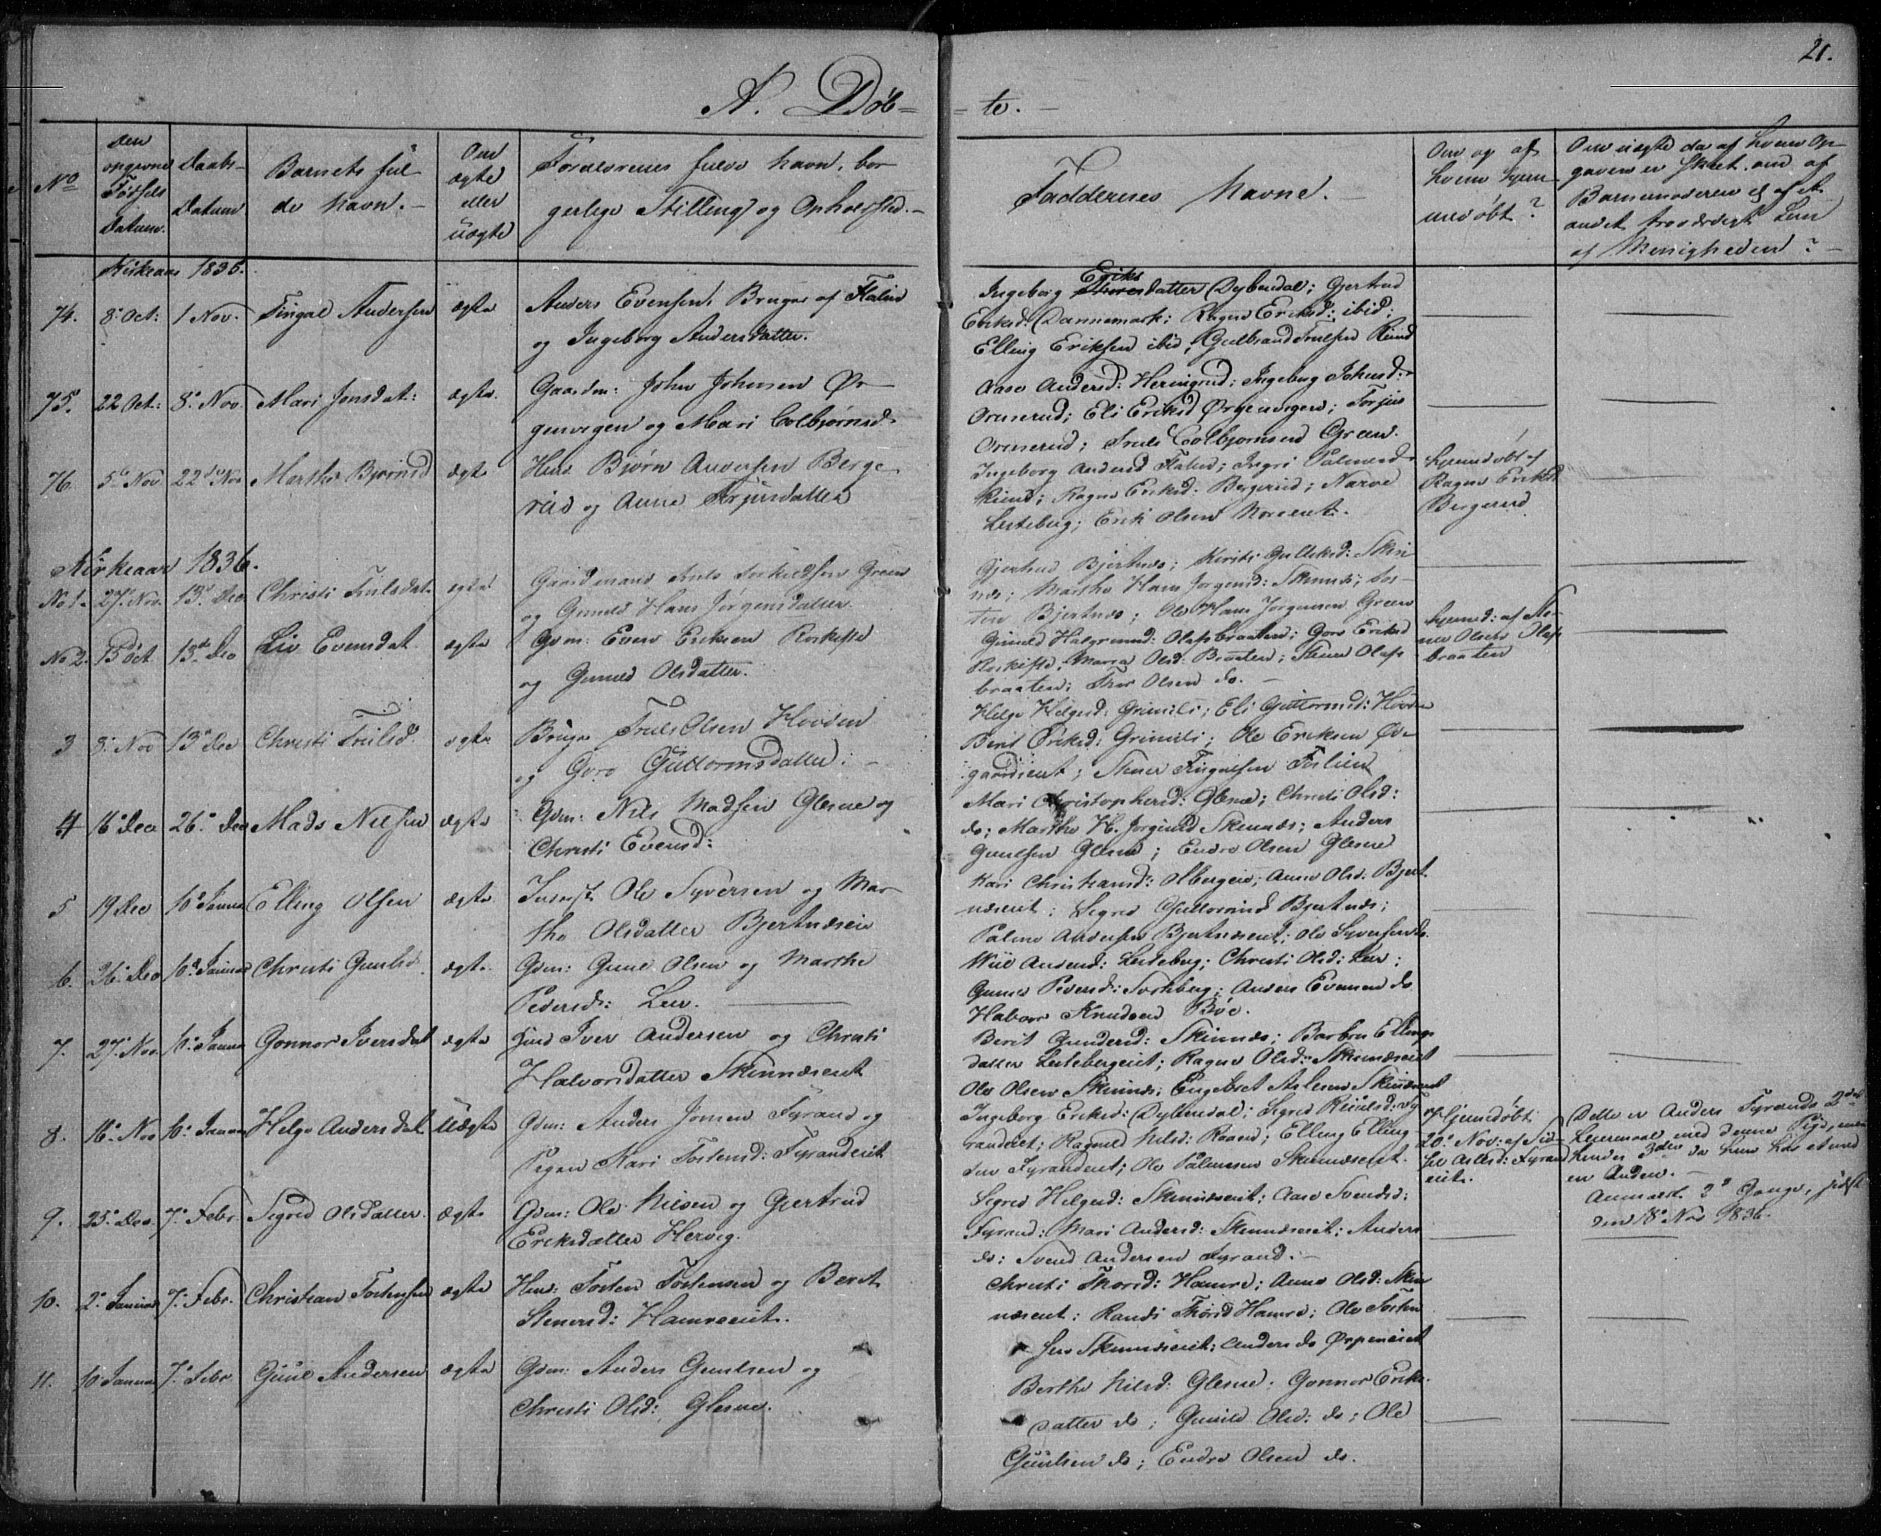 21.
A. Døb-
-te.
No
den
Fødsels
Datum.
Daabs-
Datum
Barnets ful-
de Navn.
Om
ægte
eller
uægte
Forældrenes fulde Navn, bor-
gerlige Stilling og Opholdsted.
Faddernes Navne.
Om og af
hvem hjem-
medøbt?
Om uægte da af hvem Op-
gaven er skeet, om af
Barnemoderen el. af et
andet troværdigt Lem
af Menigheden?
Kirkeaar 1836.
74. 8 Oct: 1 Nov. Fingal Andersen ægte
Anders Evensen Bruger af
og Ingeborg Andersdatter.
Ingeborg Eriksdatter Dybendal; Gjertrud
Eriksd: Dannemark; Ragne Eriksd: ibid;
Elling Eriksen ibid; Gulbrand Trulsen
75. 22 Oct: 8 Nov. Mari Jonsdat: ægte
Gaardm: John Johnsen Ør-
genvigen og Mari Colbjørnsd
Aase Andersd: Ingeborg Johnsd:
Ormerud; Eli Eriksd Ørgenvigen; Torjus
Ormerud; Truls Colbjørnsen Green.
76. 5 Nov 22 Nov Marthe Bjørnsd ægte
Huus Bjørn Andersen Berge-
rud og Anne Torjusdatter
Ingeborg Andersd Ingri Palmesd
Ragne Eriksd: Bergerud; Narve
Lesteberg; Erik Olsen
hjemdøbt af
Ragne Eriksd
Bergerud
Kirkeaar 1836.
No 1. 27 Nov. 13 Dec Christi Trulsdat. ægte
Gaardmand Truls Green
og Gunild Hans Jørgensdatter.
Gjertrud Bjertnæs; Kirsti
Marthe Hans Jørgensd: Skinnes;
Bjertnæs; Ole Hans Jørgensen Green
No 2. 15 Oct 13 Dec Liv Evensdat. ægte
Gdm: Even Eriksen Roskifte
og Gunild Olsdatter.
Gunild Halgrimsd: Olafsbraaten; Goro Eriksd
Roskifte; Maria Olsd: Braaten; Stener Olafs
braaten; Thor Olsen do.
hjemd: af
Olsen Olafs
braaten
3 8 Nov 13 Dec Christi Trulsd. ægte
Bruger Truls Olsen Hovden
og Goro Guttormsdatter.
Helge Helgesd: Grimeli; Eli Guttormsd: Hovden
Berit Eriksd: Grimeli; Ole Eriksen
4 16 Dec 26 Dec Mads Nilsen ægte
Gdm: Nils Madsen Glesne og
Christi Evensd:
Mari Christophersd: Glesne; Christi Olsd:
do; Marthe H. Jørgensd Skinnes; Anders
Gunulsen Glesne; Endre Olsen Glesne
5 19 Dec 10 Januar Elling Olsen ægte
Inderst Ole Syversen og Mar-
the Olsdatter Bjertnæseie
Kari Christiansd: Anne Olsd: Bjert-
næseiet; Sigrid Guttormsd Bjertnæs;
Palme Andersen Bjertnæseiet; Ole Syversen do.
6. 26 Dec 10 Januar Christi Gunulsd. ægte
Gdm: Gunul Olsen og Marthe
Pedersd: Leer.
Andersd: Lesteberg; Christi Olsd: Leer;
Gunild Pedersd: Anders Evensen do
Halvor Knudsen Bøe.
7. 27 Nov. 10 Januar Gonnor Iversdat ægte
Huus Iver Andersen og Christi
Halvorsdatter Skinnæseiet
Berit Gundersd: Skinnes; Barbro Ellings-
datter Lestebergeiet; Ragne Olsd: Skinnæseiet
Ole Olsen Skinnes; Engebret Aslesen Skinnæseiet
8. 16 Nov 10 Januar Helge Andersdat uægte
Gdm: Anders Jonsen Tyrand og
Pigen Kari Tostensd: Tyrandeiet
Ingeborg Eriksd: Dybendal; Sigrid Ty-
randeiet; Ragnild Nilsd: Elling Elling-
sen Tyrandeiet; Ole Palmesen Skinnæseiet.
hjemdøbt
20 Nov: af
Aslesd: Tyrand
eiet.
Dette er Anders Tyrands 2det
Leiermaal med denne Pige, men
hendes 3die da hun har et med
en Anden.
Anmeldt 2 Gange, sidst
den 18 Nov 1836.
9. 25 Dec. 7 Febr. Sigrid Olsdatter. ægte
Gdm: Ole Nilsen og Gjertrud
Eriksdatter Hervig.
Sigrid Helgesd: Skinnæseiet; Aase Svendsd:
Tyrand; Mari Andersd: Skinnæseiet; Anders
do; Svend Andersen Tyrand.
10. 2 Januar 7 Febr. Christian Tostensen ægte
Huus: Tosten Tostensen og Berit
Stenersd: Hamreeiet.
Christi Thorsd: Hamre; Anne Olsd: Skin-
næseiet; Randi Thorsd Hamre; Ole Tosten-
sen Skinnæseiet; Anders do
11. 10 Januar 7 Febr. Gunul Andersen ægte
Gdm: Anders Gunulsen og
Christi Olsd: Glesne.
Berthe Nilsd: Glesne. Gonnor Eriks-
datter do; Gunild Olsd: do; Ole
Gunulsen do; Endre Olsen do.